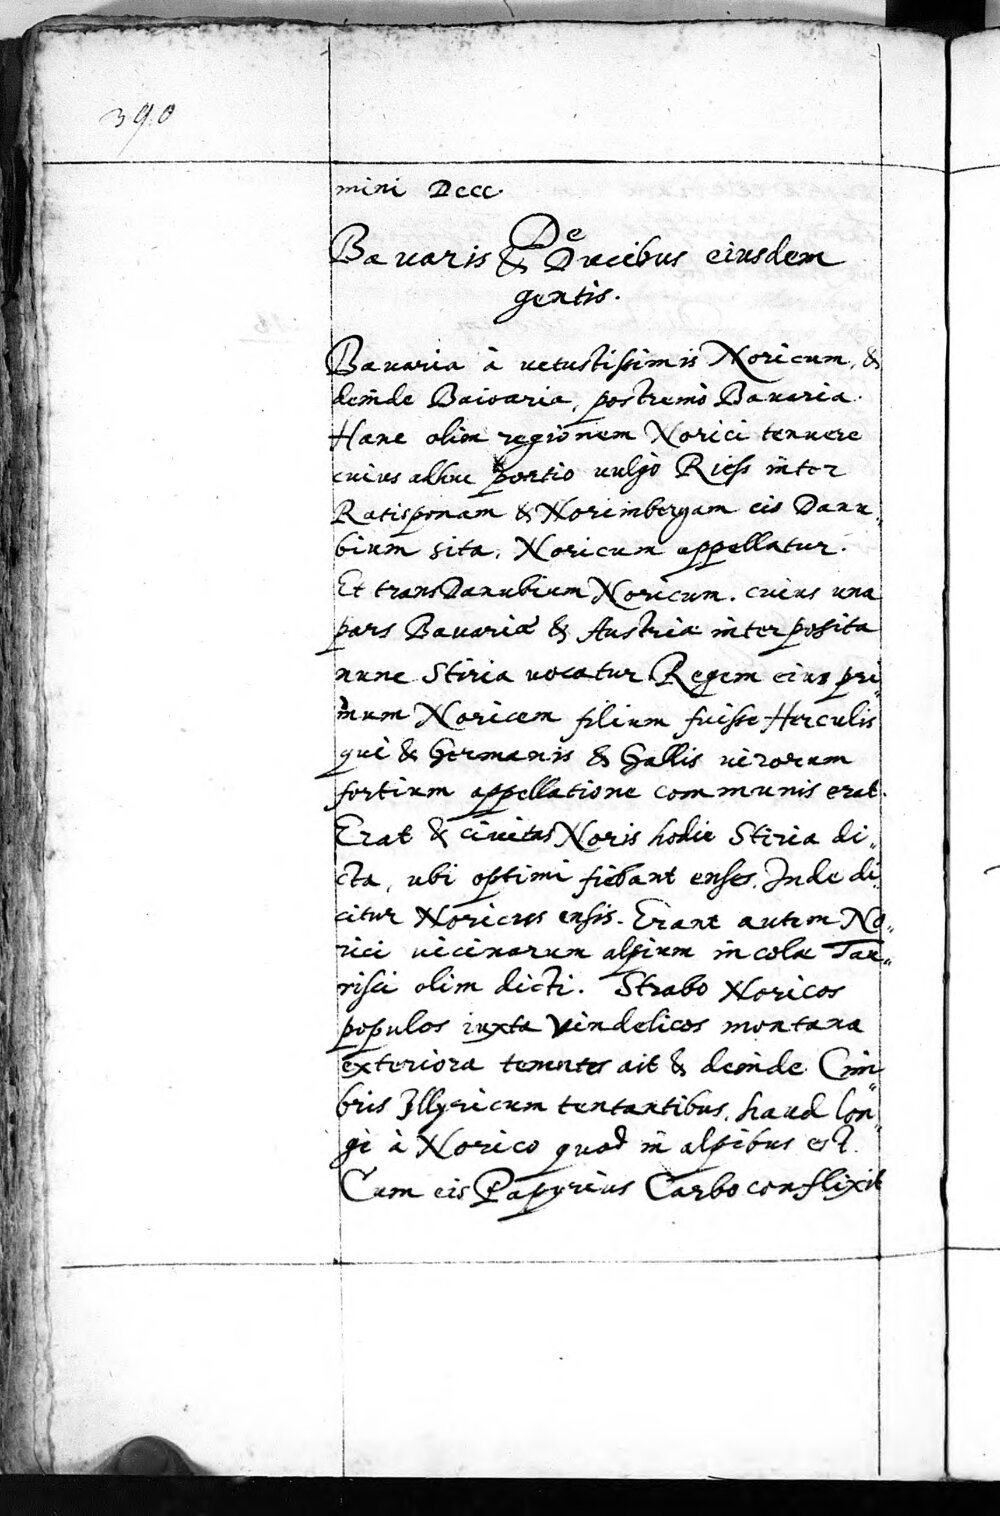 390
mini Dccc.
De
Bavaris & Ducibus eiusdem
gentis.
Bavaria à vetustissimis Noricum, &
deinde Baioaria, postremò Bavaria.
Hanc olim regionem Norici tenuere
cuius adhuc portio vulgo Riess inter
Ratisponam & Norimbergam cis Danu„
bium sita, Noricum appellatur.
Et trans Danubium Noricum. cuius una
pars Bavariæ & Austriæ interposita
nunc Stiria vocatur. Regem eius pri„
mum Noricem filium fuisse Herculis
qui & Germanis & Gallis virorum
fortium appellatione communis erat.
Erat & civitas Noris hodie Stiria di„
cta, ubi optimi fiebant enses. Inde di„
citur Noricus ensis. Erant autem No„
rici vicinarum alpium incolæ Tau„
risci olim dicti. Strabo Noricos
populos iuxta Vindelicos montana
exteriora tenentes ait & deinde Cim„
bris Illyricum tentantibus, haud lon„
gè à Norico quod in alpibus est.
Cum eis Papyrius Carbo conflixit